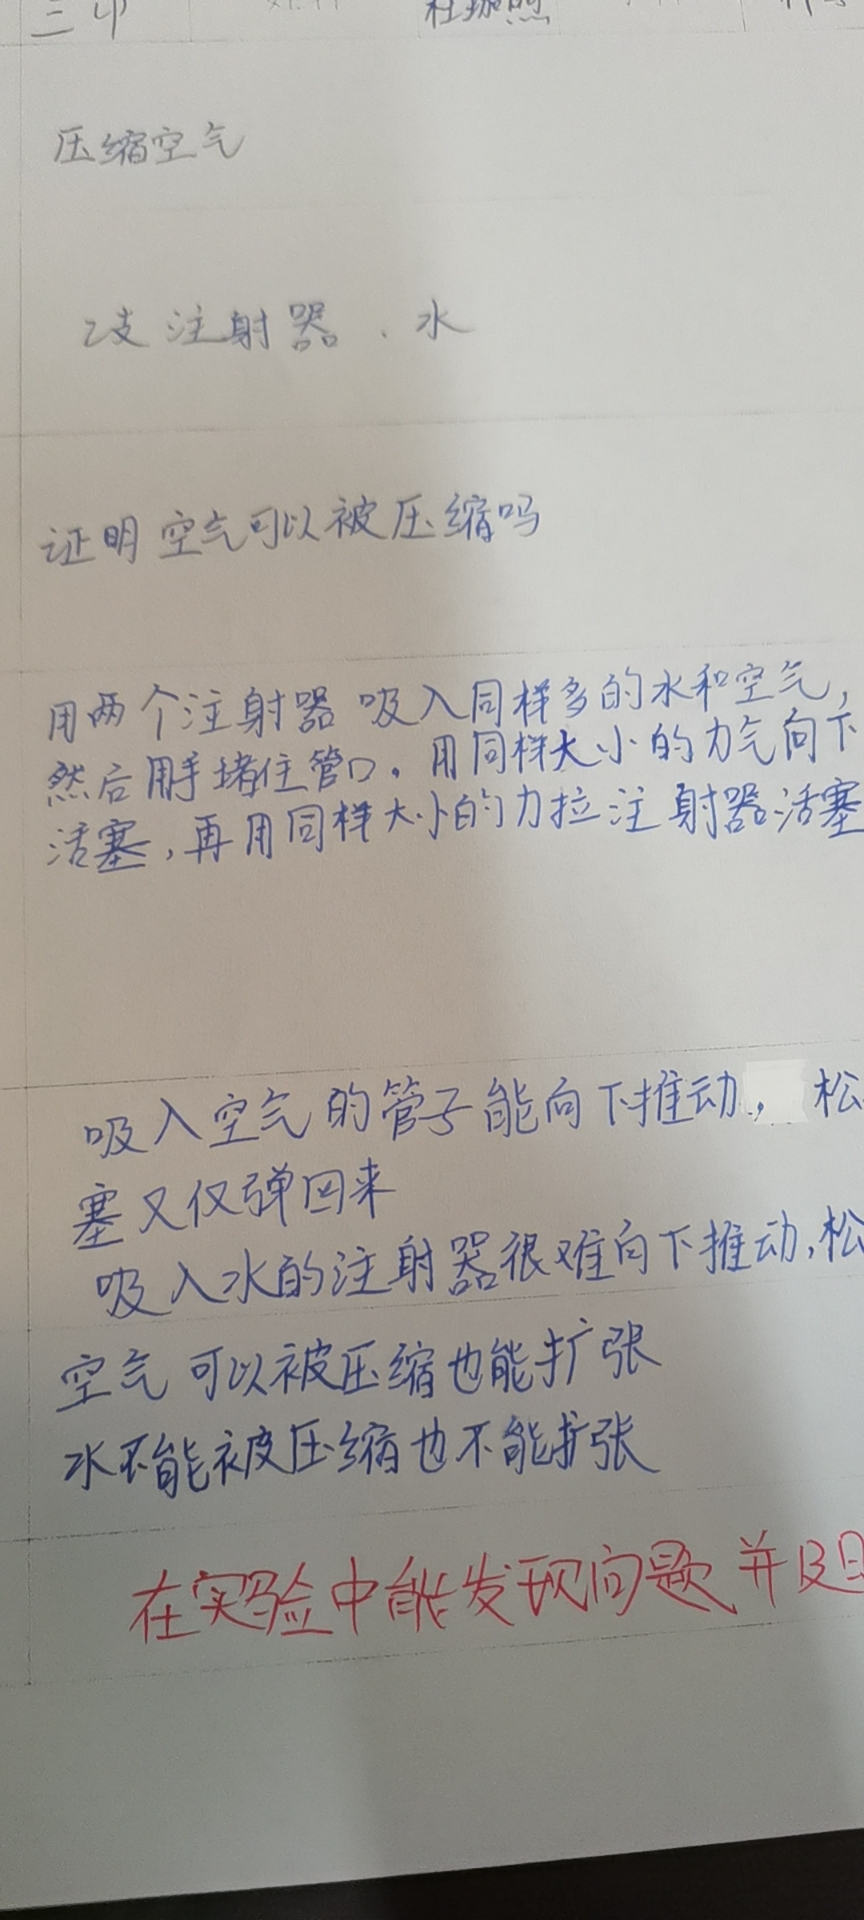 压缩空气
2支注射器、水
证明空气可以被压缩吗
用两个注射器吸入同样多的水和空气,
然后用手堵住管口。用同样大小的力气向下
活塞,再用同样大小的力拉注射器活塞
吸入空气的管子能向下推动, 松
塞又仅弹回来
吸入水的注射器很难向下推动,松
空气可以被压缩也能扩张
水不能被压缩也不能扩张
在实验中能发现问题并及